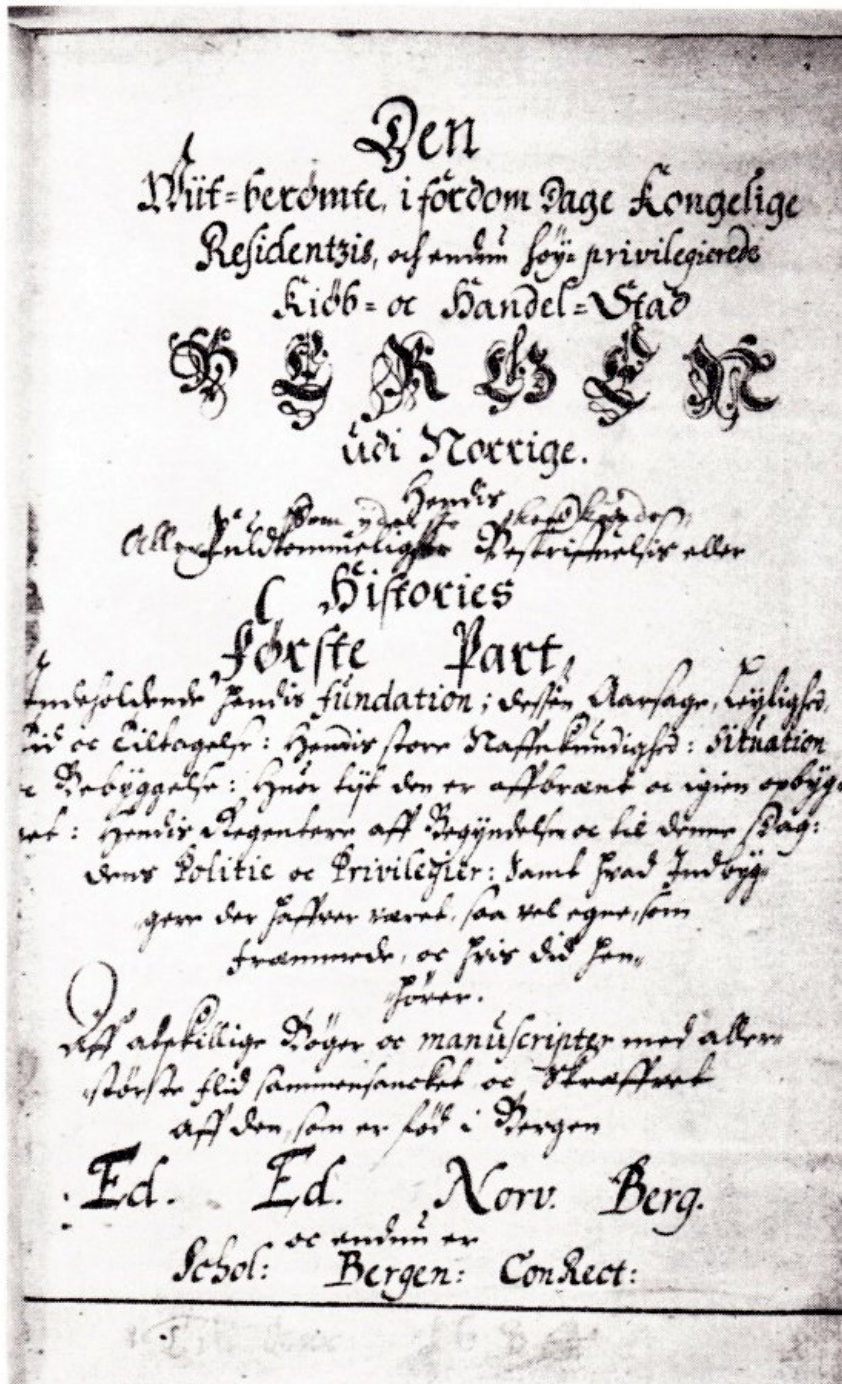 Den
Wiit=berømte, i fordom Dage Kongelige
Residentzis, och endnu høy= privilegierede
Kiøb= oc Handel=Stad
BERGEN
udi Norrige.
Hendis
Som
Fuldkommeligste Beskrifvelsis eller
Histories
Første Part,
Indeholdende Hendis fundation; dessen Aarsage, Leylighed,
Tid oc Tiltagelse: Hendis store Naffnkundighed: Situation
Bebyggelse: Huor tijt den er affbrent oc igien opbyg=
et: Hendis Regentere aff Begyndelsen oc til denne Dag:
dens Politie oc Privilegier: Samt hvad Indbyg=
gere der haffver veret, saa vel egne, som
fremmede, oc hvis did hen=
hører.
Aff atskillige Bøger oc manuscripter med aller=
største flid sammensancket oc
aff den, som er fød i Bergen
Ed. Ed. Norv. Berg.
oc endnu er
Schol: Bergen: ConRect: